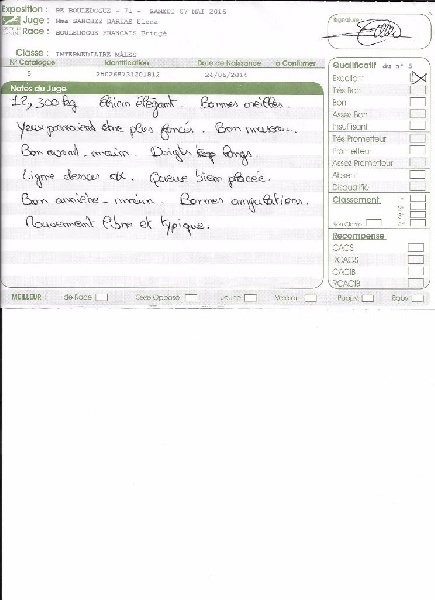 Exposition : RE BOULEDOGUE - 71 - SAMEDI 07 MAI 2016
Juge : Mme SANCHEZ GARIAS Elena
Race : BOULEDOGUE FRANCAIS Bringé
Signature :
Classe : INTERMEDIAIRE MALES
N° Catalogue Identification Date de Naissance à Confirmer
5 250268731201812 24/06/2014
Notes du Juge
12,300 kg Chien élégant. Bonnes oreilles.
Yeux pourraient être plus foncés. Bon museau.
Bon avant-main. Doigts longs.
Ligne dessus ok. Queue bien placée.
Bon arrière-main. Bonnes angulations.
Mouvement libre et typique.
Qualificatif du n° 5
Excellent
Très Bon
Bon
Assez Bon
Insuffisant
Très Prometteur
Prometteur
Assez Prometteur
Absent
Disqualifié
Classement
Récompense
CACS
RCACS
CACIB
RCACIB
MEILLEUR : de Race Sexe Opposé Jeune Vétéran Puppy Baby